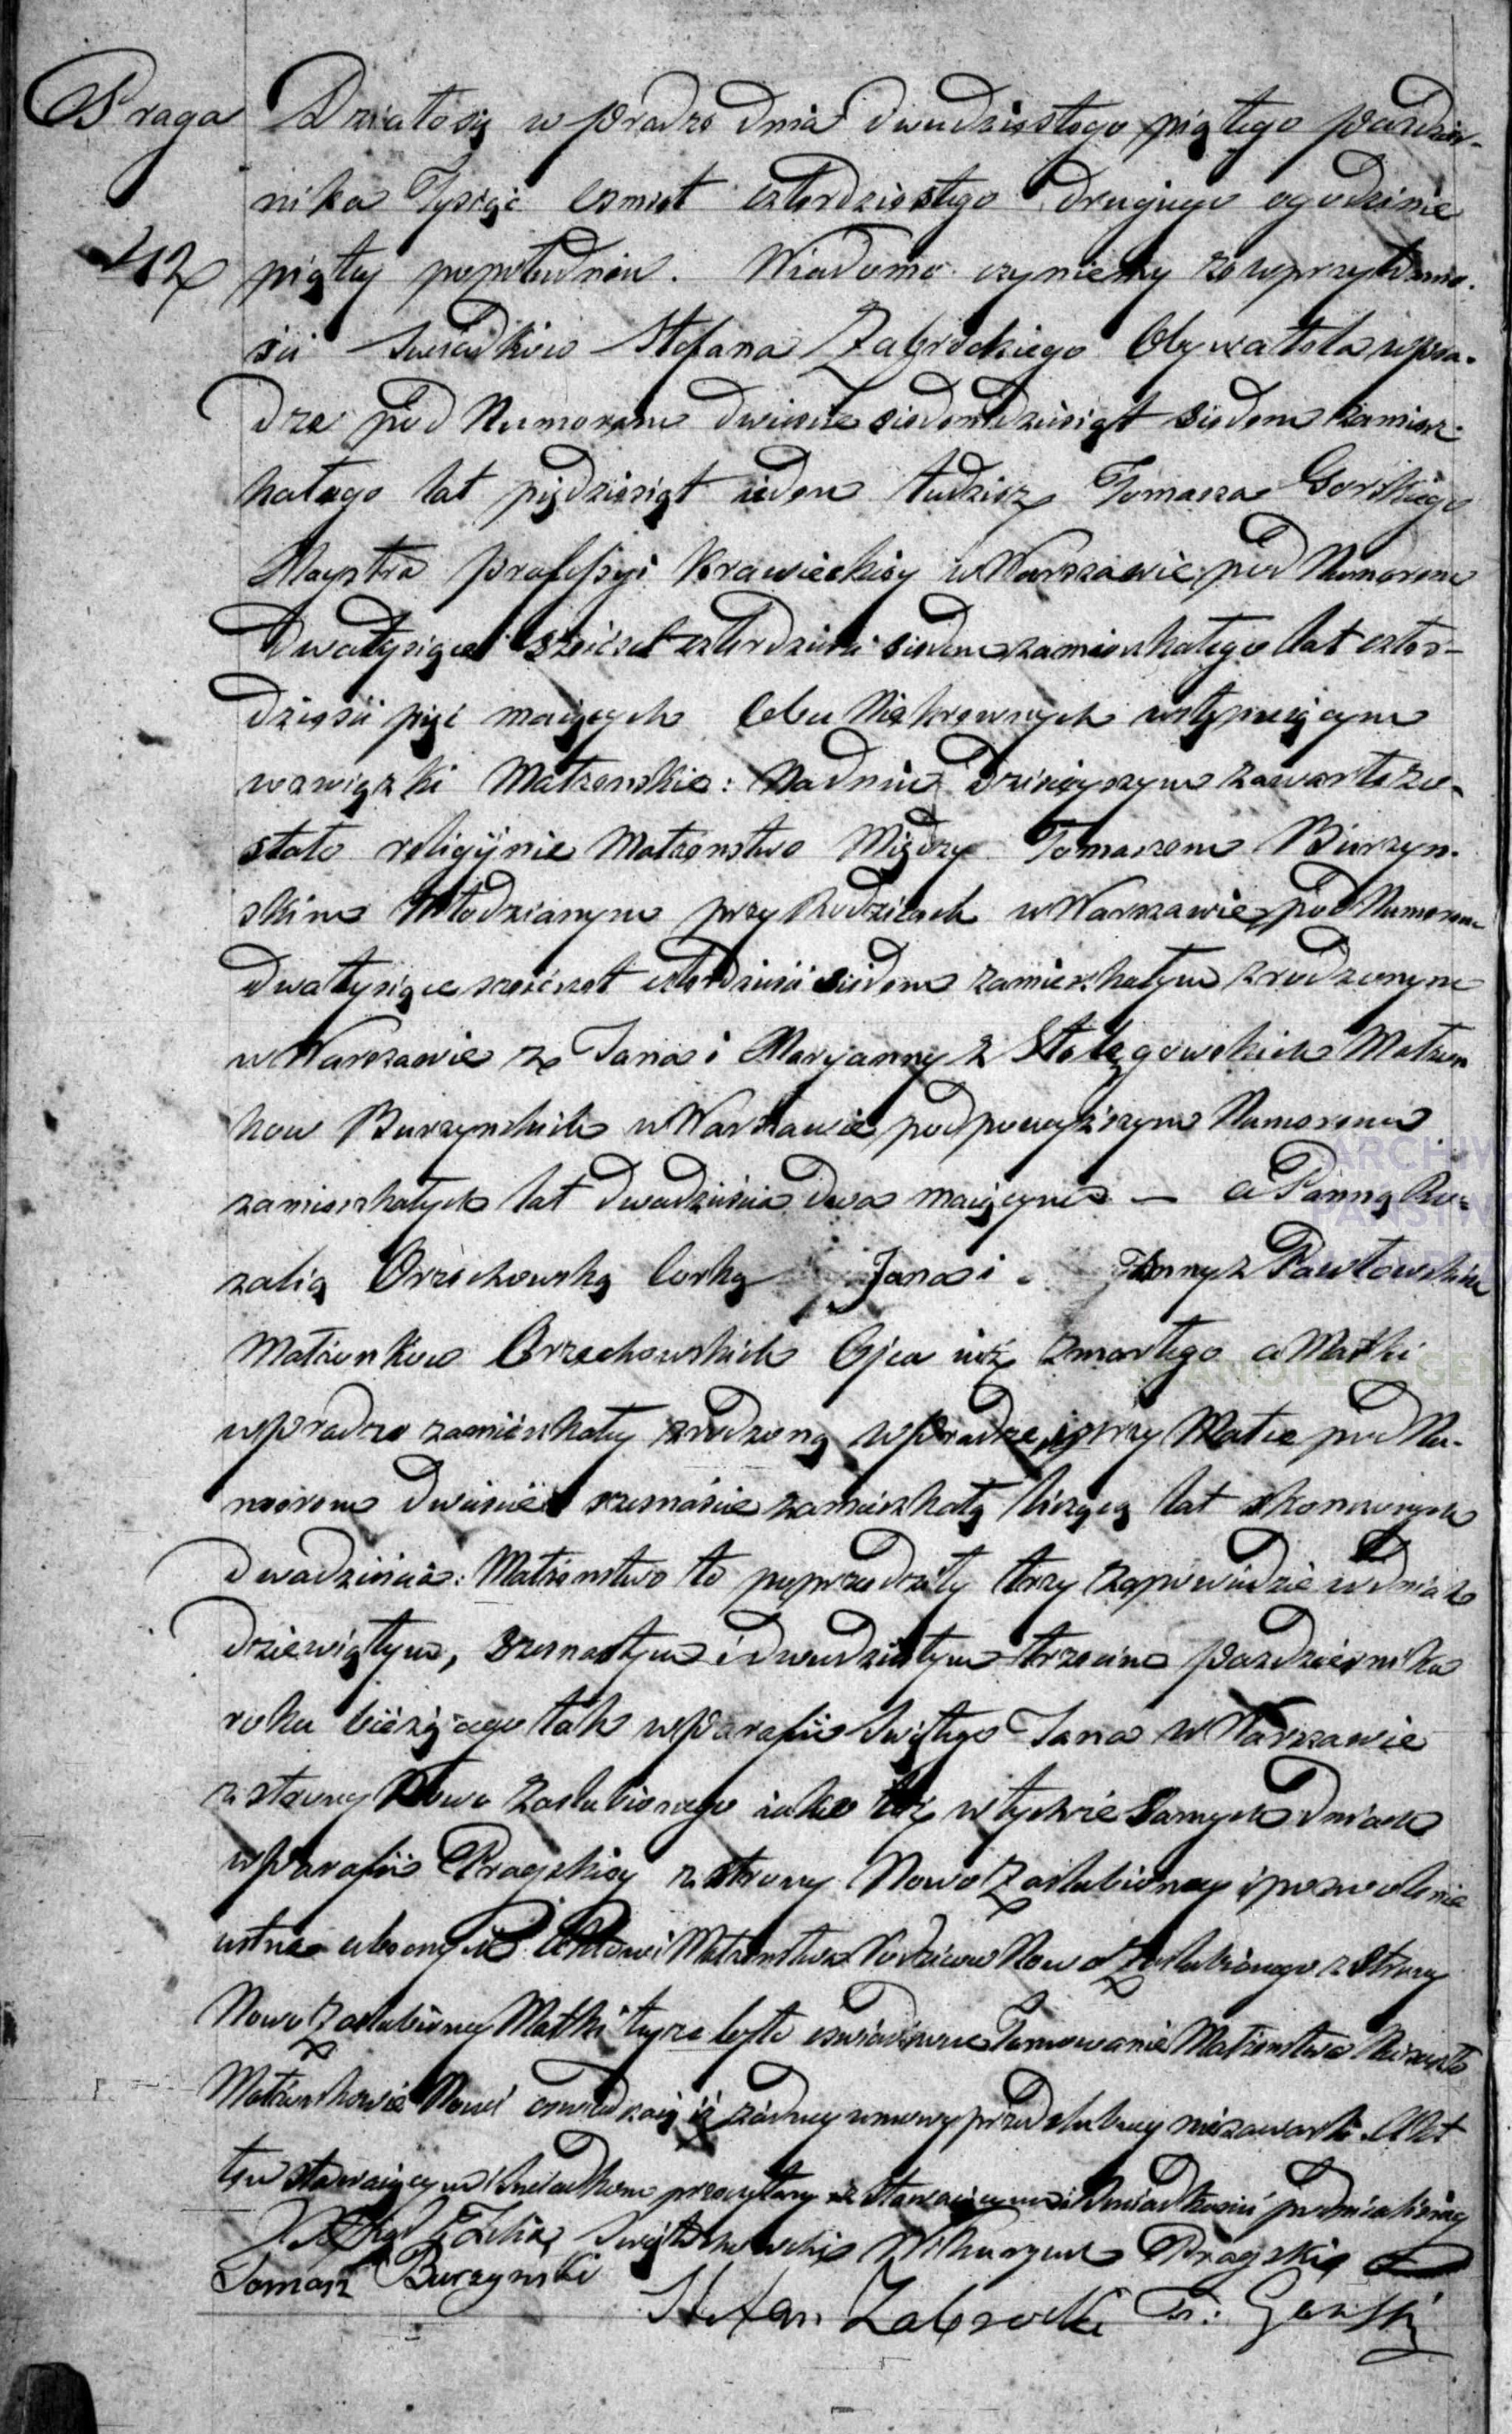 Praga
42
Działo się w Pradze dnia dwudziestego piątego Paździer-
nika Tysiąc ośmset czterdziestego drugiego o godzinie
piątej popołudniu. Wiadomo czyniemy że w przytomno-
ści świadków Stefana Zabrockiego Obywatela w Pra-
dze pod Numerem dwieście siedemdziesiąt siedem zamiesz-
kałego lat pięćdziesiąt ieden tudzież Tomasza Gorskiego
Maystra professyi Krawieckiey w Warszawie pod Numerem
dwatysiące sześćset czterdzieści siedem zamieszkałego lat czter-
dzieści pięć maiących Obu Niekrewnych wstępuiącym
w związki Małżeńskie: Na dniu dzisieyszym zawarte zo-
stało religiynie Małżeństwo Między Tomaszem Burzyn-
skim Młodzianym przy Rodzicach w Warszawie pod Numerem
dwatysiące sześćset czterdzieści siedem zamieszkałym zrodzonym
w Warszawie z Jana i Maryanny z Stolęgowskich Małżon
kow Burzynskich w Warszawie pod powyższym Numerem
zamieszkałych lat dwadzieścia dwa maiącym — a Panną Ro-
zalią Orzechowską Corką Jana i Anny z Pawłowskich
Małżonkow Orzechowskich Ojca iuż zmarłego a Matki
w Pradze zamieszkałey zrodzoną w Pradze i przy Matce pod Nu-
merem dwieście szesnaście zamieszkałą liczącą lat skonczonych
dwadzieścia: Małżeństwo to poprzedziły trzy zapowiedzie w dniach
dziewiątym, szesnastym i dwudziestym trzecim Pazdziernika
roku bieżącego tak w Parafii Swiętego Jana w Warszawie
z strony Nowo Zaślubionego iako też w tychże samych dniach
w Parafii Pragskiey z strony Nowo Zaślubioney i pozwolenie
ustne obecnych Aktowi Małżeństwa Rodziców Nowo Zaślubionego z Strony
Nowo Zaślubioney Matki tejże było oświadczone Tamowanie Małżeństwa Nie zaszło
Małżonkowie Nowi oswiadczaią iż żadney umowy przedślubney nie zawarli. Akt
ten stawaiącym i Świadkom przeczytany z Stawaiącym i Świadkami podpisaliśmy
X. Felix Swiętochowski Wikaryusz Pragski
Tomasz Burzynski
Stefan Zabrocki To: Gorski
ARCHIW
PAŃSTW